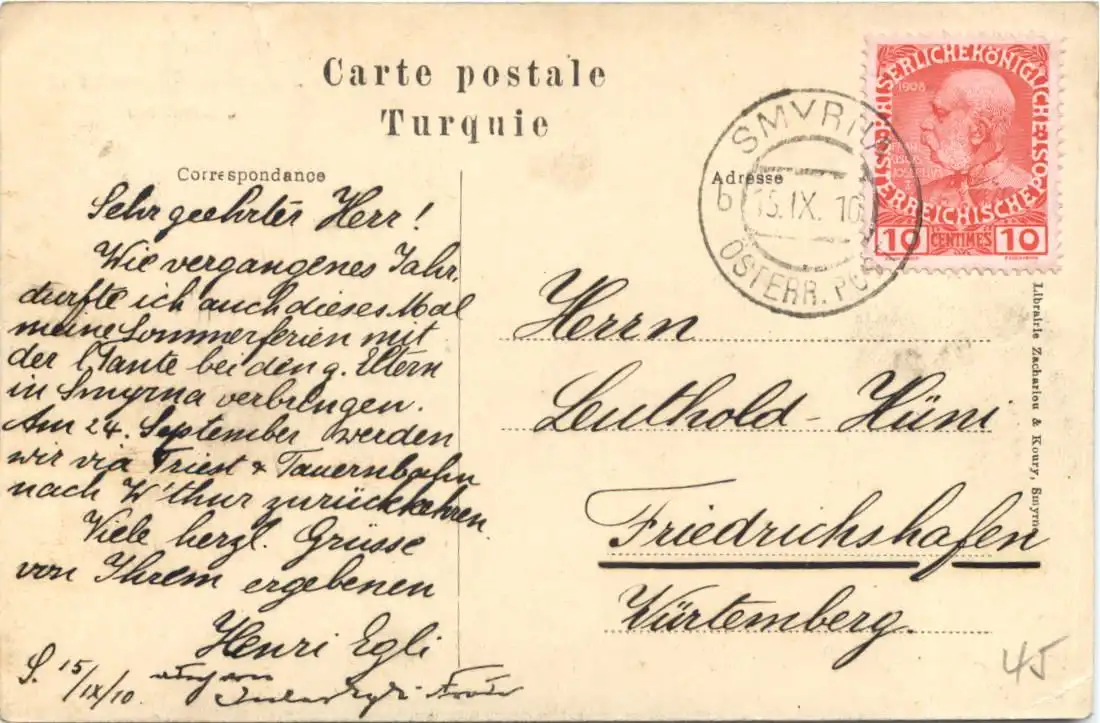 Carte postale
Turquie
Correspondance
Adresse
Sehr geehrter Herr!
Wie vergangenes Jahr,
durfte ich auch dieses Mal
meine Sommerferien mit
der l. Tante bei den g. Eltern
in Smyrna verbringen.
Am 24. September werden
wir via Triest & Tauernbahn
nach W'thur zurückkehren.
Viele herzl. Grüsse
von Ihrem ergebenen
Henri Egli
S. 15/IX/10
Herrn
Leuthold-Hüni
Friedrichshafen
Würtemberg.
45
SMYRNA
b 15.IX.10
ÖSTERR. POST
KAISERLICHEKÖNIGLICHE ÖSTERREICHISCHE POST
1908
10 CENTIMES 10
Librairie Zachariou & Koury, Smyrne